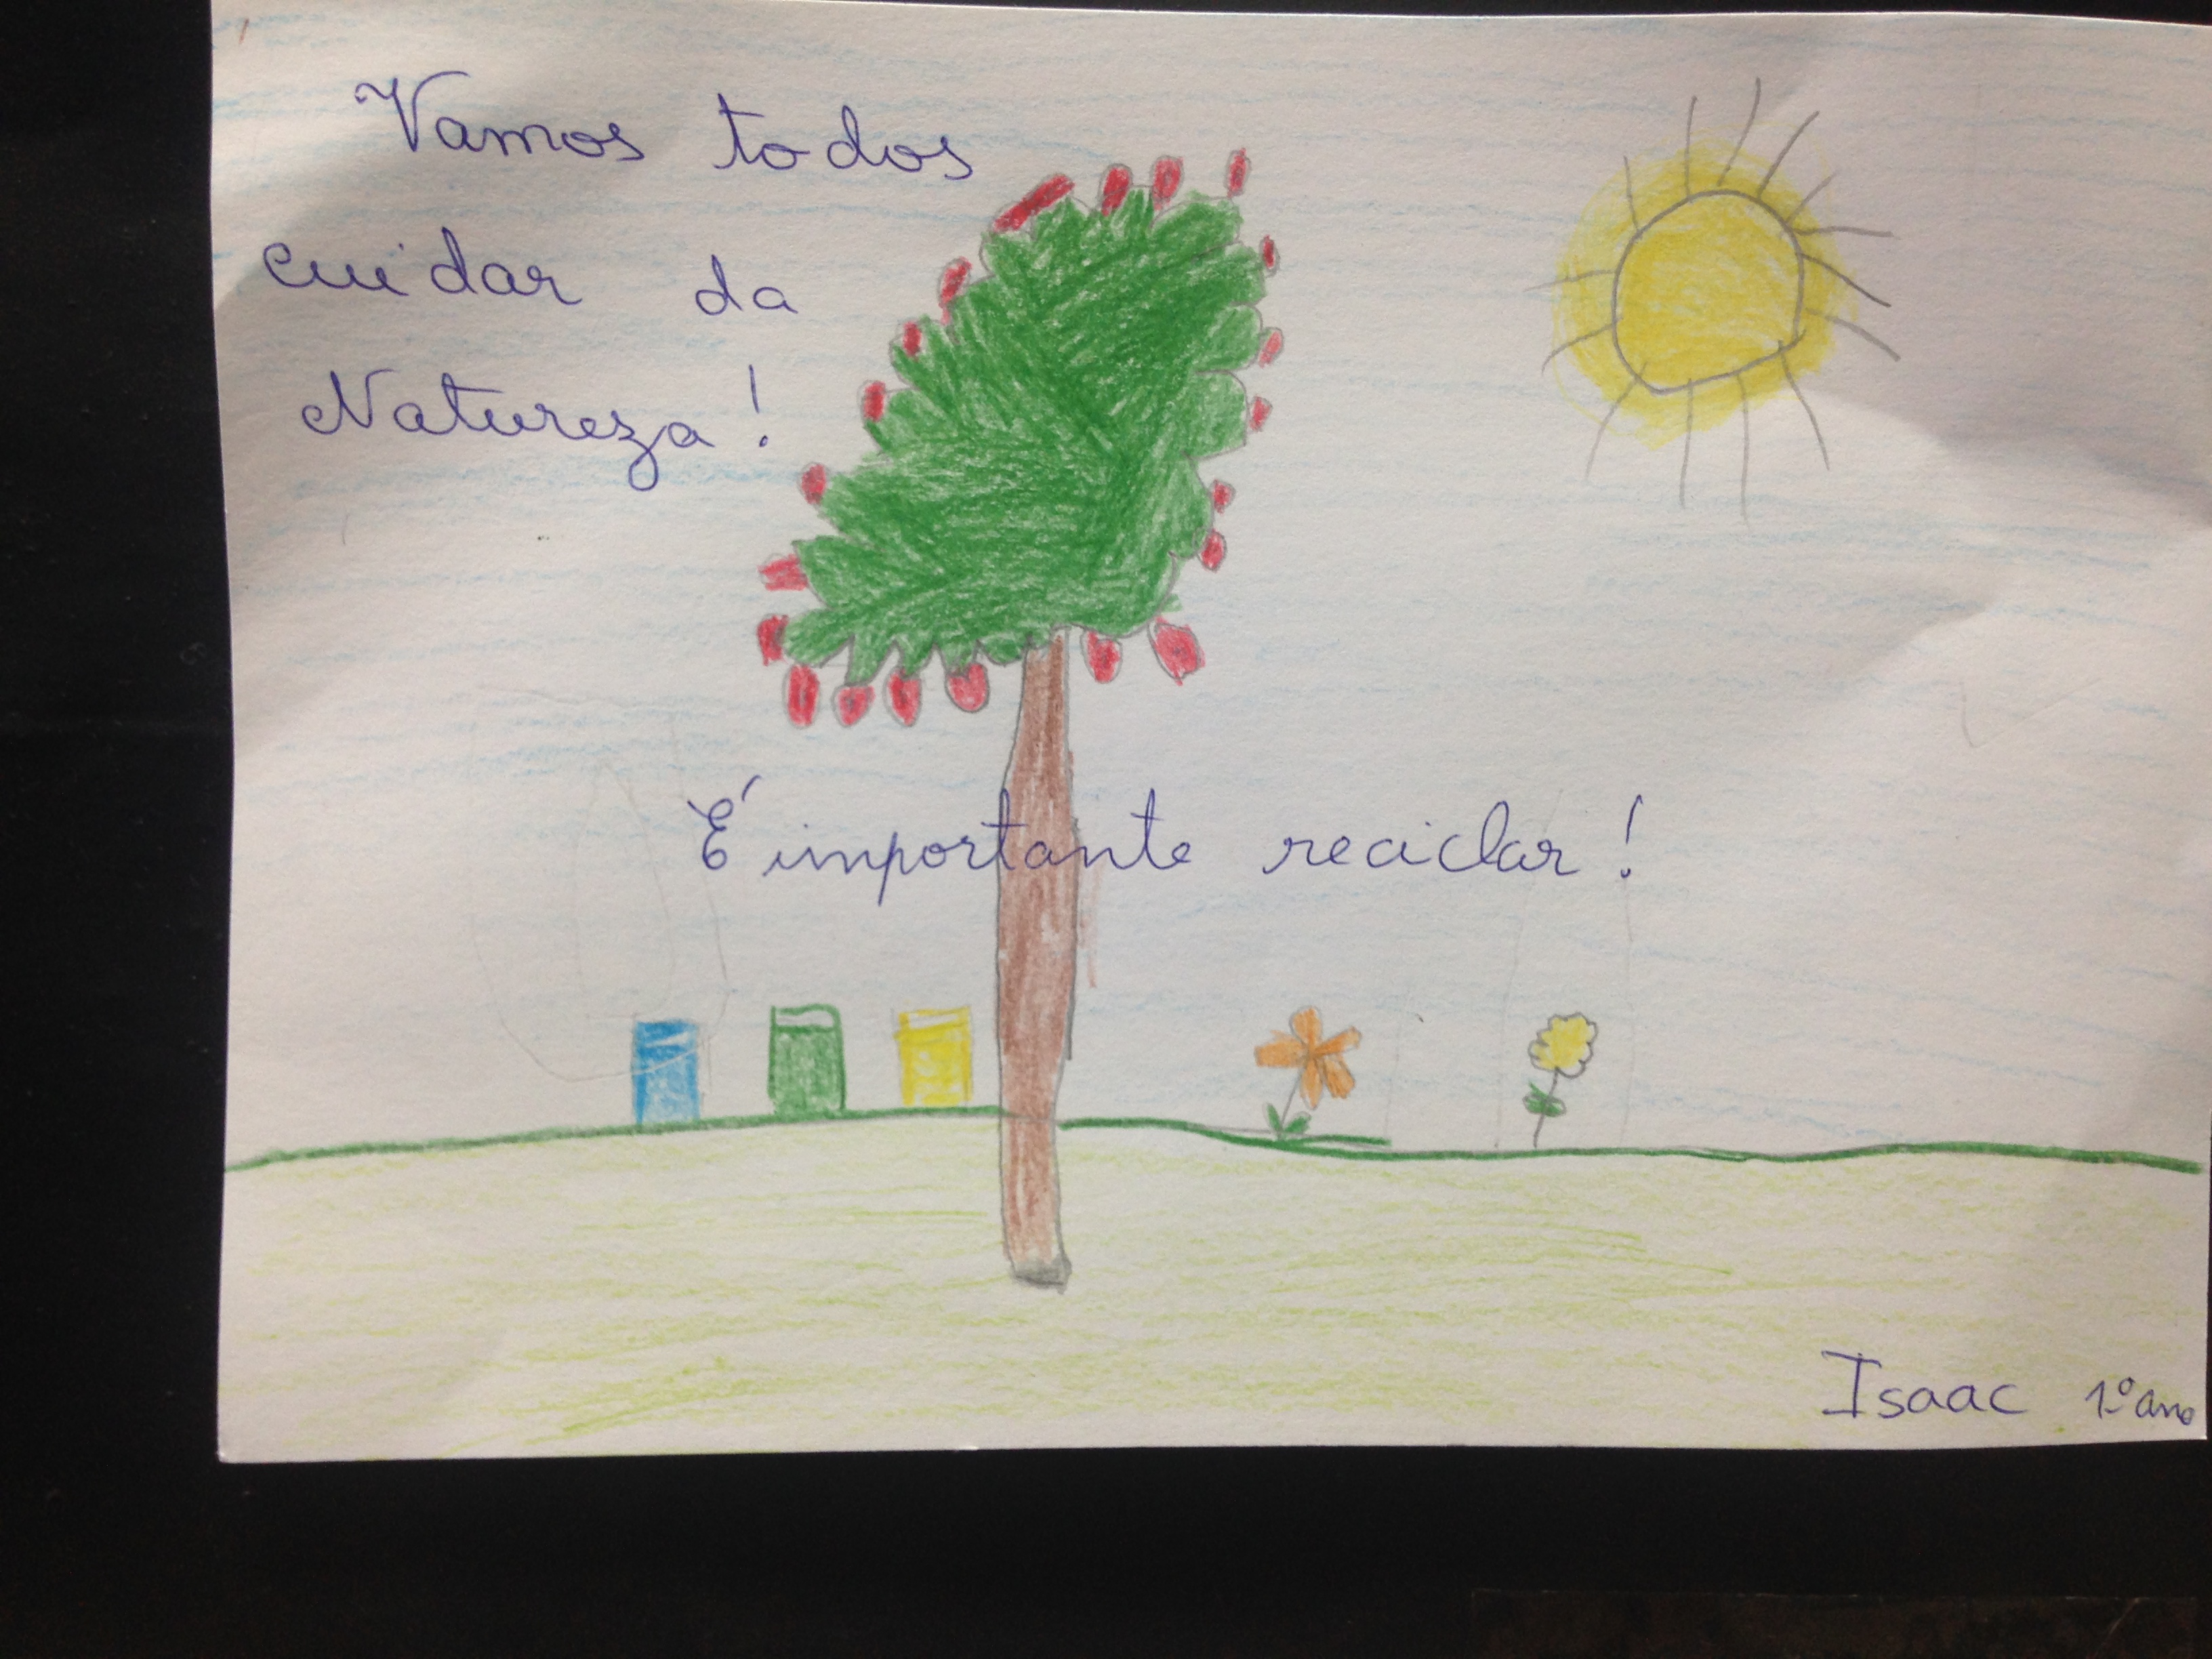 Vamos todos
cuidar da
Natureza!
É importante reciclar!
Isaac 1º ano